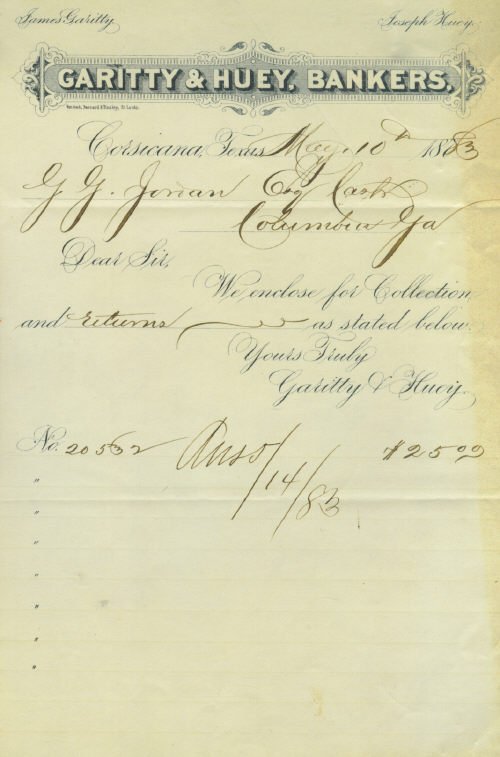 James Garitty Joseph Huey.
GARITTY & HUEY, BANKERS.
Corsicana, Texas May 10th 1883
G. G. Jordan Esq Cash
Columbus Ga
Dear Sir,
We enclose for Collection
and returns as stated below.
Yours Truly
Garitty & Huey.
No. 20532 Ans 5/14/83 $25 00
"
"
"
"
"
"
"